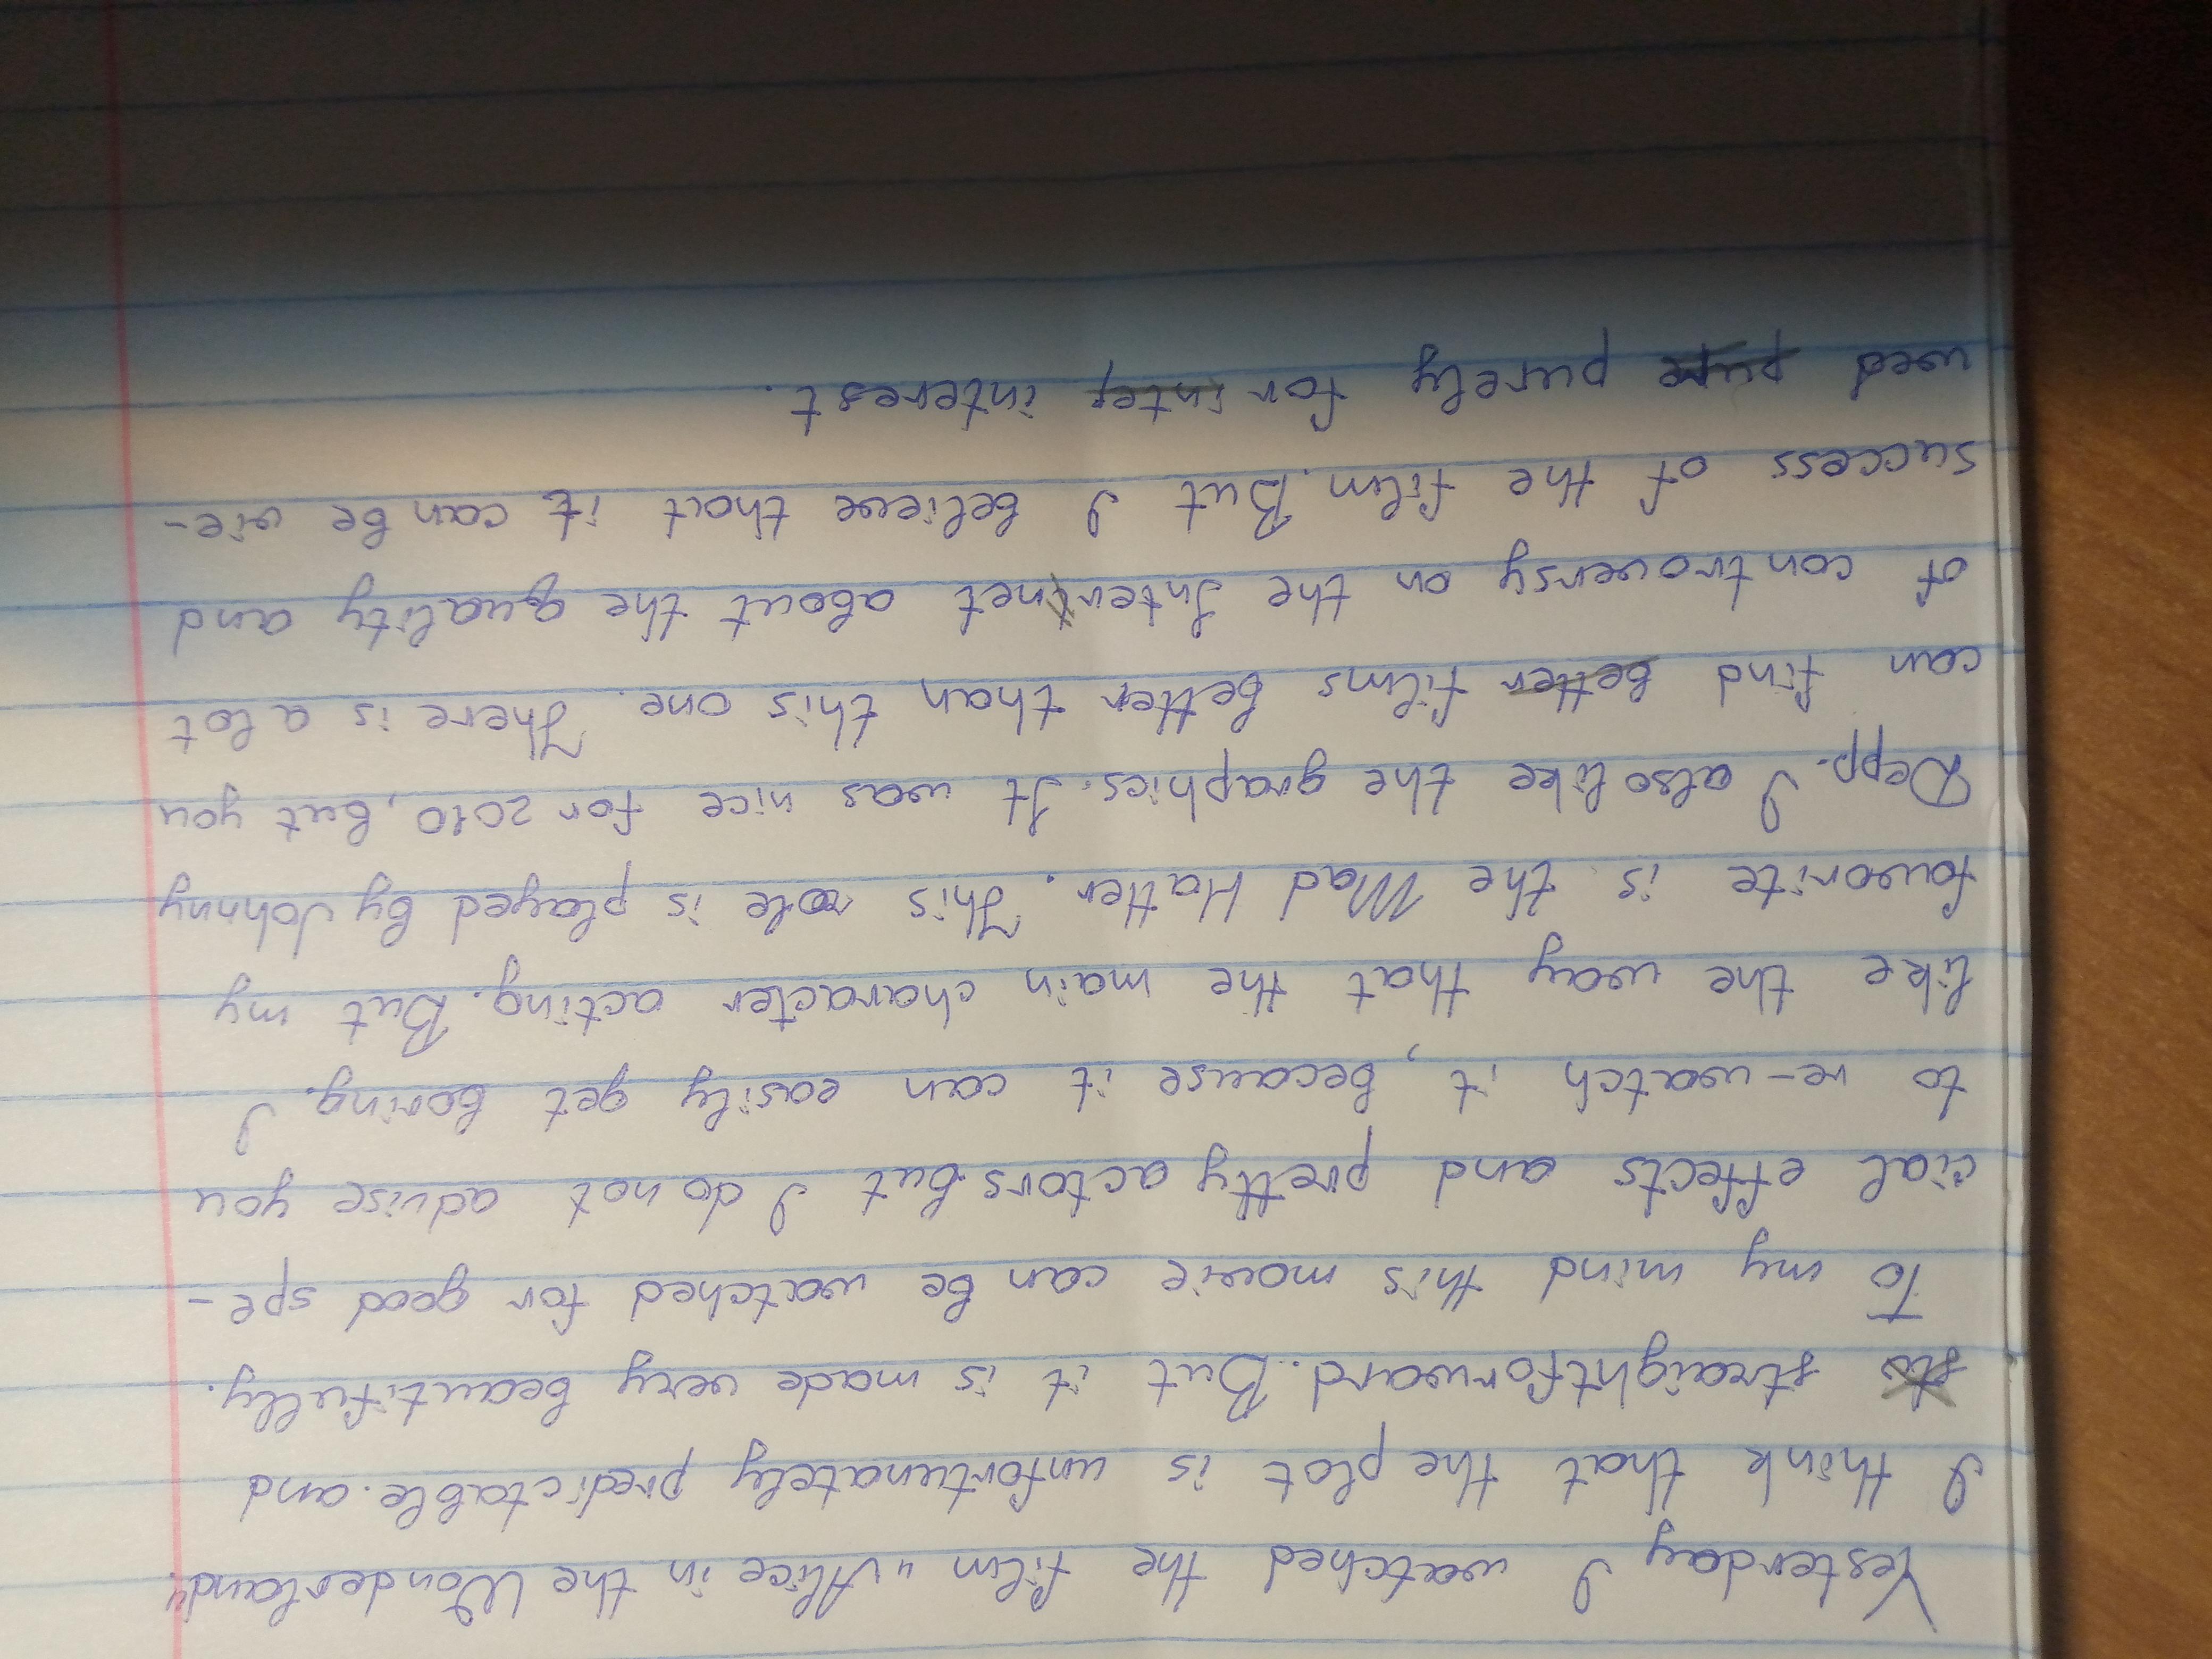 Yesterday I watched the film "Alice in the Wonderland"
I think that the plot is unfortunately predictable. and
straightforward. But it is made very beautifully.
To my mind this movie can be watched for good spe-
cial effects and pretty actors. But I do not advise you
to re-watch it, because it can easily get boring. I
like the way that the main character acting. But my
favorite is the Mad Hatter. This role is played by Johnny
Depp. I also like the graphics. It was nice for 2010, but you
can find better films better than this one. There is a lot
of controversy on the Internet about the quality and
success of the film. But I believe that it can be vie-
wed pure purely for inter interest.